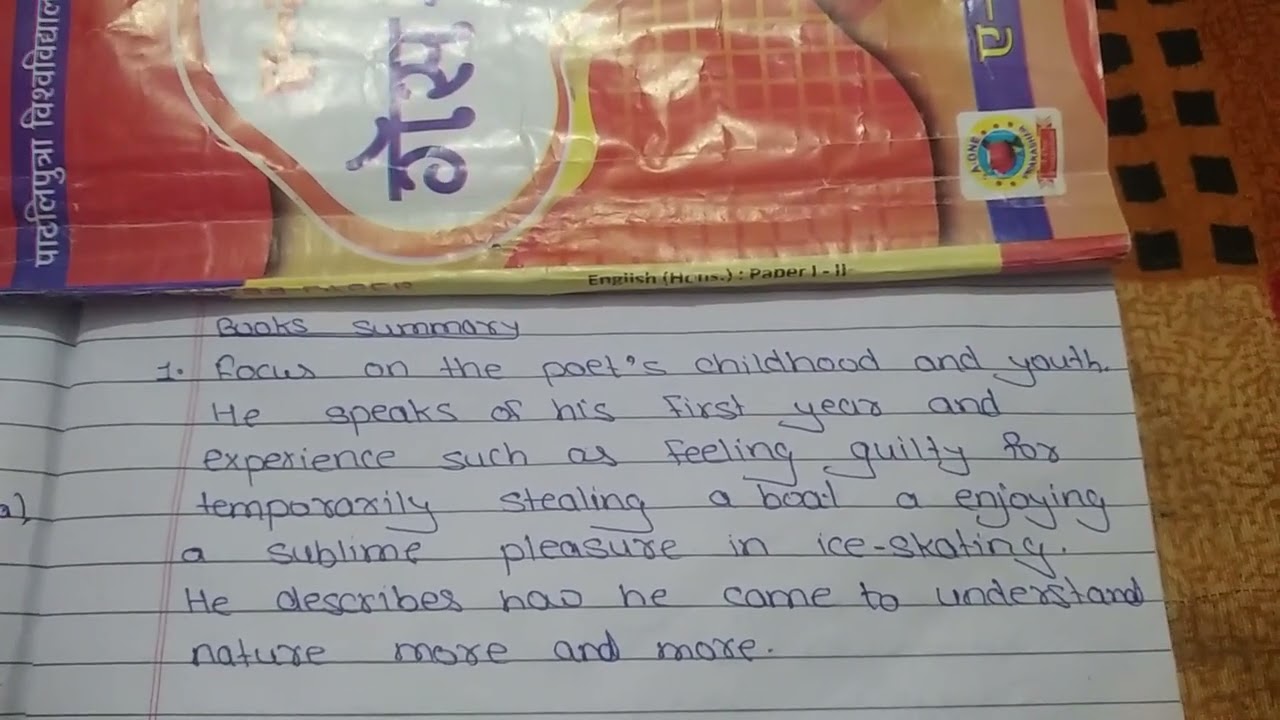 पाटलिपुत्रा विश्वविद्याल
गेस
ए-
English (Hons.) : Paper I - II
Books summary
1. Focus on the poet's childhood and youth.
He speaks of his first year and
experience such as feeling guilty for
a) temporarily stealing a boat a enjoying
a sublime pleasure in ice-skating.
He describes how he came to understand
nature more and more.